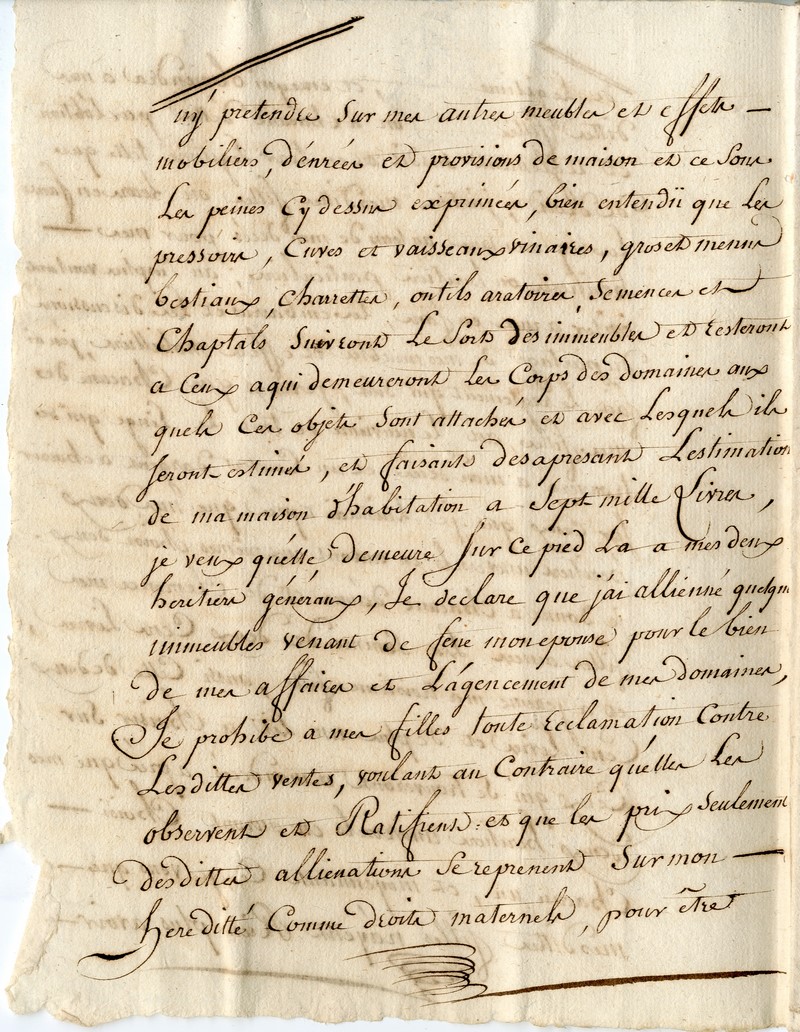 ny pretendre sur mes autres meubles et effets —
mobiliers, dénrées et provisions de maison et ce sous
Les peines Cy dessus exprimées, bien entendü que Les
pressoirs, Cuves et vaisseaux vinaires, gros et menus
bestiaux, charrettes, outils aratoires, Semences et
Chaptals Suivront Le Sort des immeubles et resteront
a Ceux a qui demeureront Les Corps des domaines aux
quels Ces objets Sont attachés et avec Lesquels ils
seront estimés, et faisant des apresant L'estimation
de ma maison d'habitation a Sept mille Livres,
je veux qu'elle demeure sur ce pied La a mes deux
heritiers généraux, Je declare que j'ai allienné quelques
immeubles venant de feue mon epouse pour le bien
de mes affaires et L'agencement de mes domaines,
Je prohibe a mes filles toute reclamation Contre
Les dittes ventes, voulant au Contraire qu'elles Les
observent et Ratifient: et que les prix seulement
des dittes allienations se reprenent sur mon —
hereditté Comme droits maternels, pour être